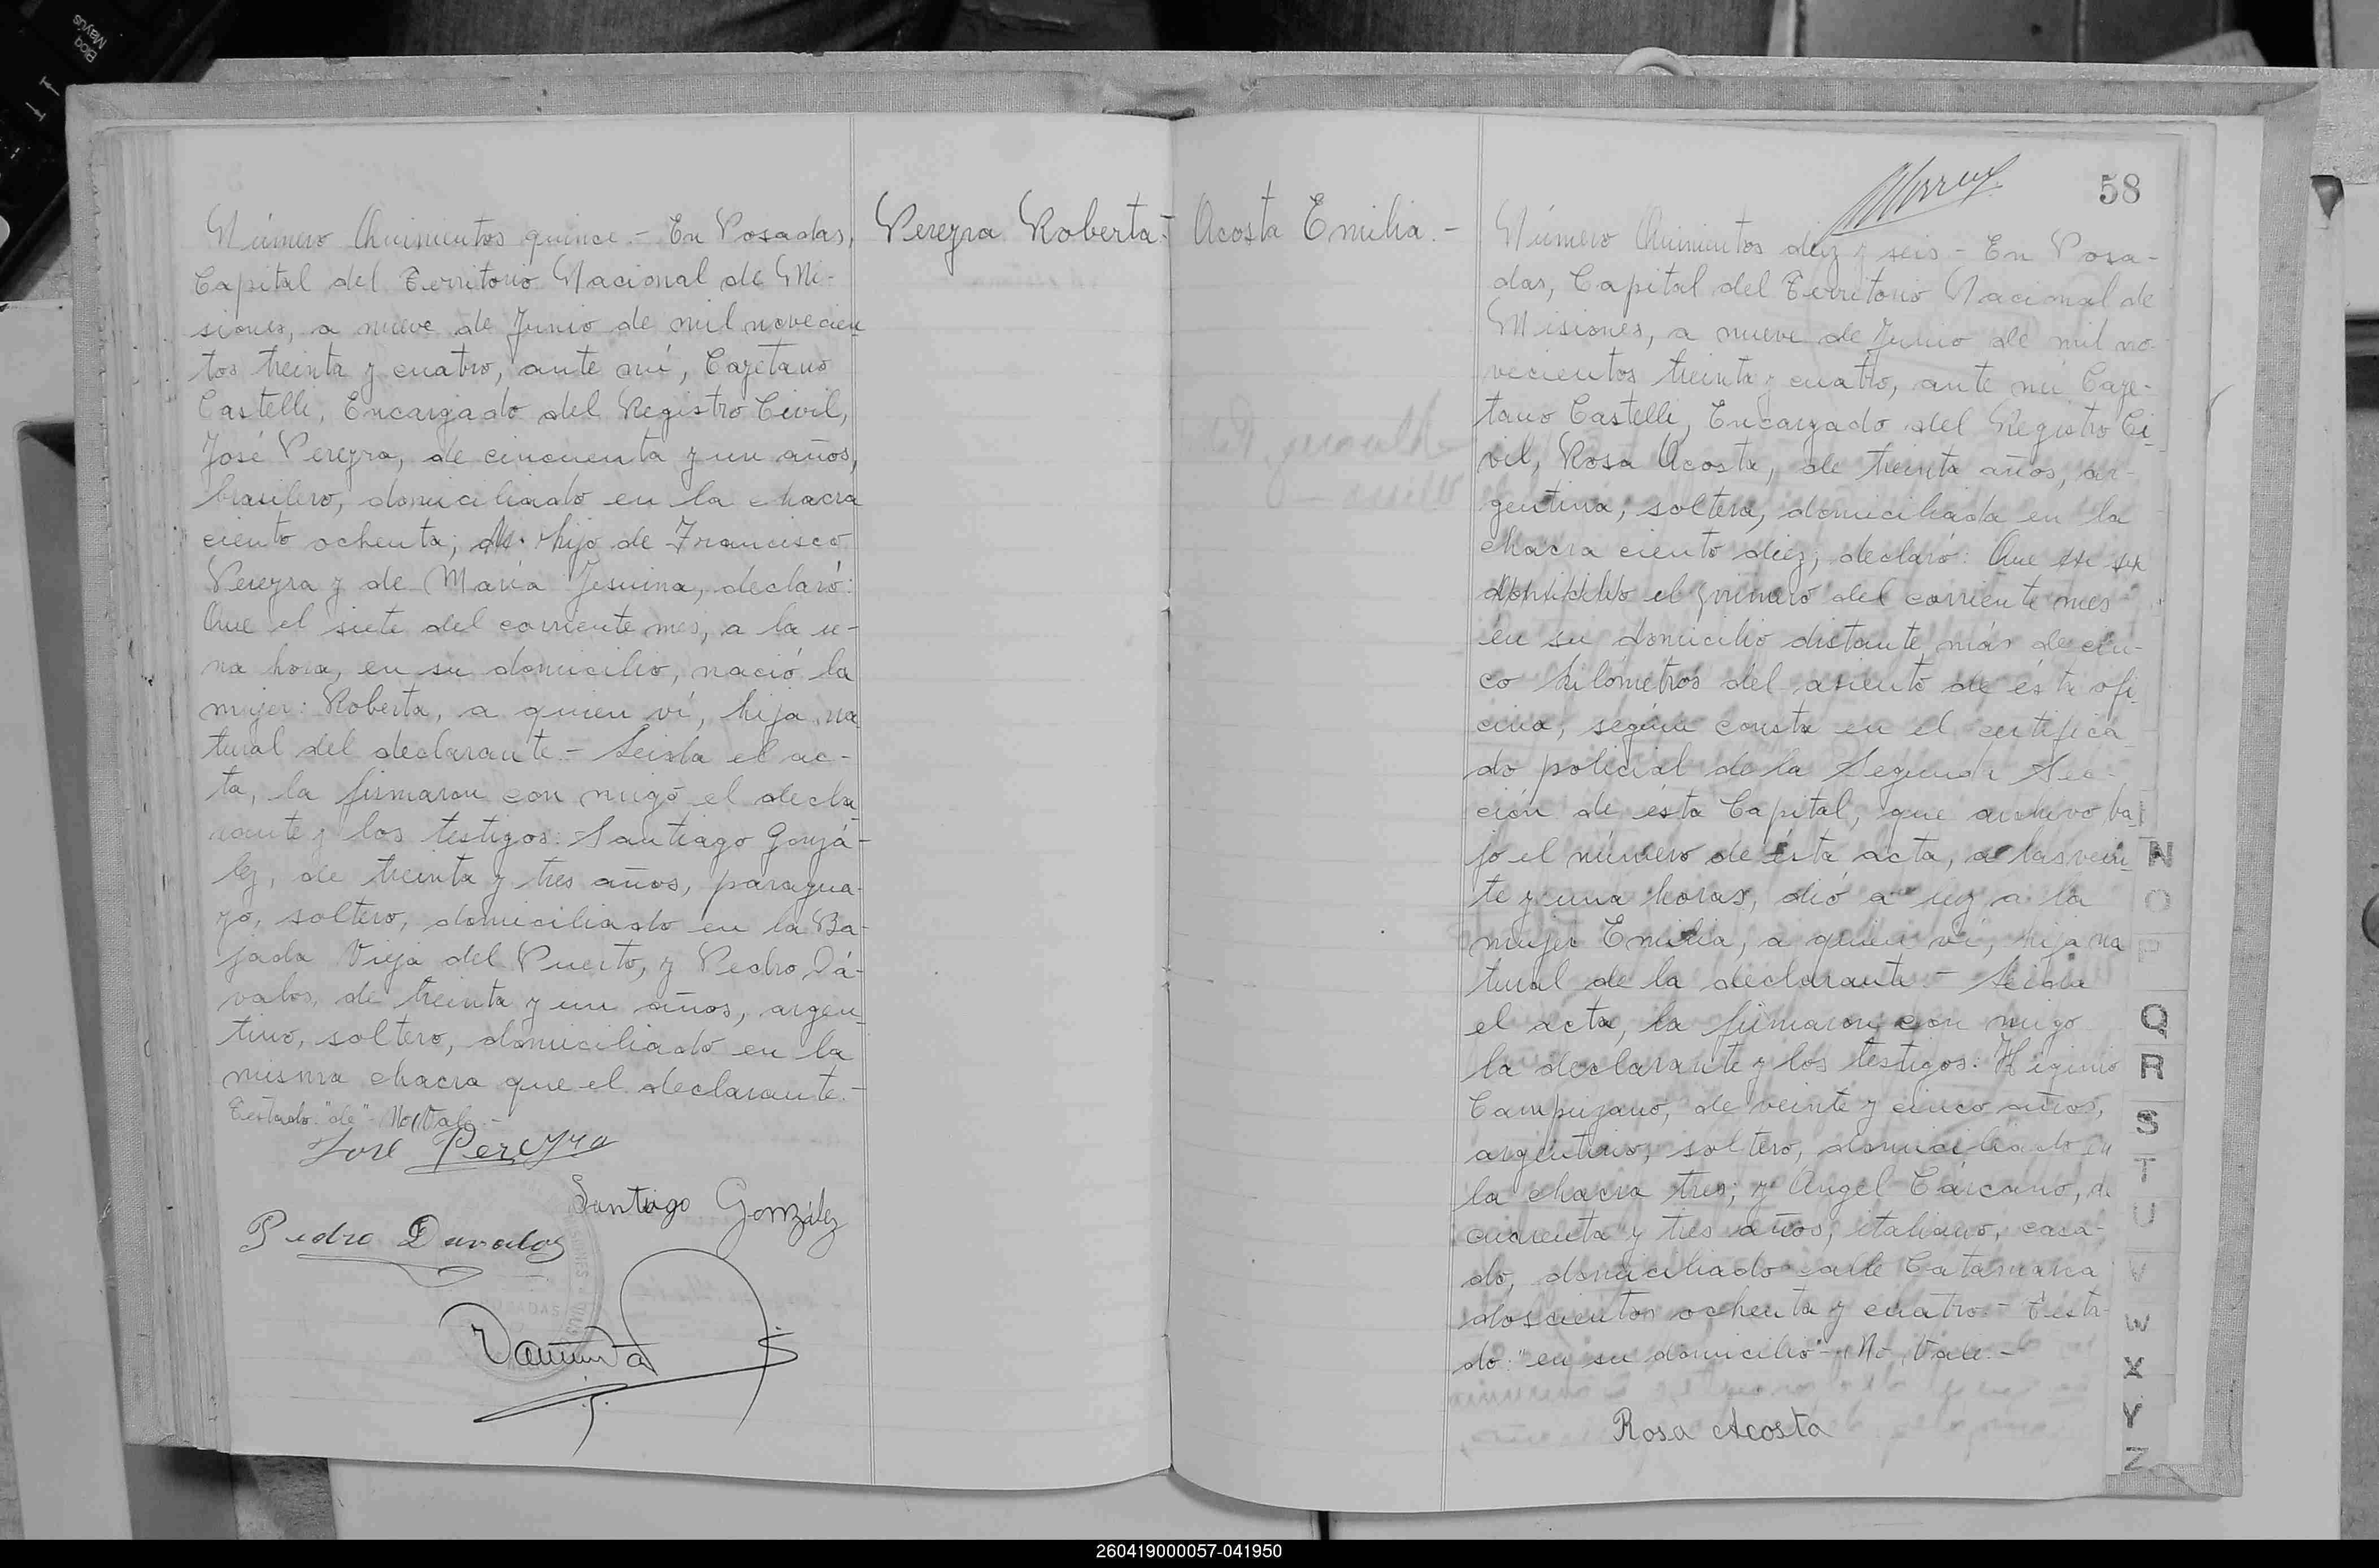 Número Quinientos quince.- En Posadas,
Capital del Territorio Nacional de Mi-
siones, a nueve de Junio de mil novecien
tos treinta y cuatro, ante mí, Cayetano
Castelli, Encargado del Registro Civil,
José Pereyra, de cincuenta y un años,
brasilero, domiciliado en la chacra
ciento ochenta; de hijo de Francisco
Pereyra y de María Jesuina, declaró:
Que el siete del corriente mes, a la u-
na hora, en su domicilio, nació la
mujer: Roberta, a quien ví, hija na
tural del declarante.- Leida el ac-
ta, la firmaron con migo el decla
rante y los testigos: Santiago Gonzá-
lez, de treinta y tres años, paragua-
yo, soltero, domiciliado en la Ba-
jada Vieja del Puerto, y Pedro Dá-
valos, de treinta y un años, argen
tino, soltero, domiciliado en la
misma chacra que el declarante.-
Testado: "de"- No Vale.-
José Pereyra
Santiago González
Pedro Davalos
Pereyra Roberta.-
Acosta Emilia.-
58
Número Quinientos diez y seis - En Posa-
das, Capital del Territorio Nacional de
Misiones, a nueve de Junio de mil no-
vecientos treinta y cuatro, ante mí Caye-
tano Castelli, Encargado del Registro Ci
vil, Rosa Acosta, de treinta años, ar-
gentina, soltera, domiciliada en la
chacra ciento diez, declaró: Que en su
domicilio el primero del corriente mes
en su domicilio distante más de cin-
co kilómetros del asiento de ésta ofi
cina, según consta en el certifica
do policial de la Segunda Sec-
ción de ésta Capital, que archivo ba
jo el número de ésta acta, a las vein
te y una horas, dió a luz a la
mujer Emilia, a quien ví, hija na
tural de la declarante.- Leida
el acta, la firmaron con migo
la declarante y los testigos: Higinio
Campuzano, de veinte y cinco años,
argentino, soltero, domiciliado en
la chacra tres; y Angel Cárcano, de
cincuenta y tres años, italiano, casa-
do, domiciliado calle Catamarca
doscientos ochenta y cuatro.- Testa-
do: "en su domicilio"- No Vale.-
Rosa Acosta
N
O
P
Q
R
S
T
U
V
W
X
Y
Z
Bloq
Mayús
260419000057-041950